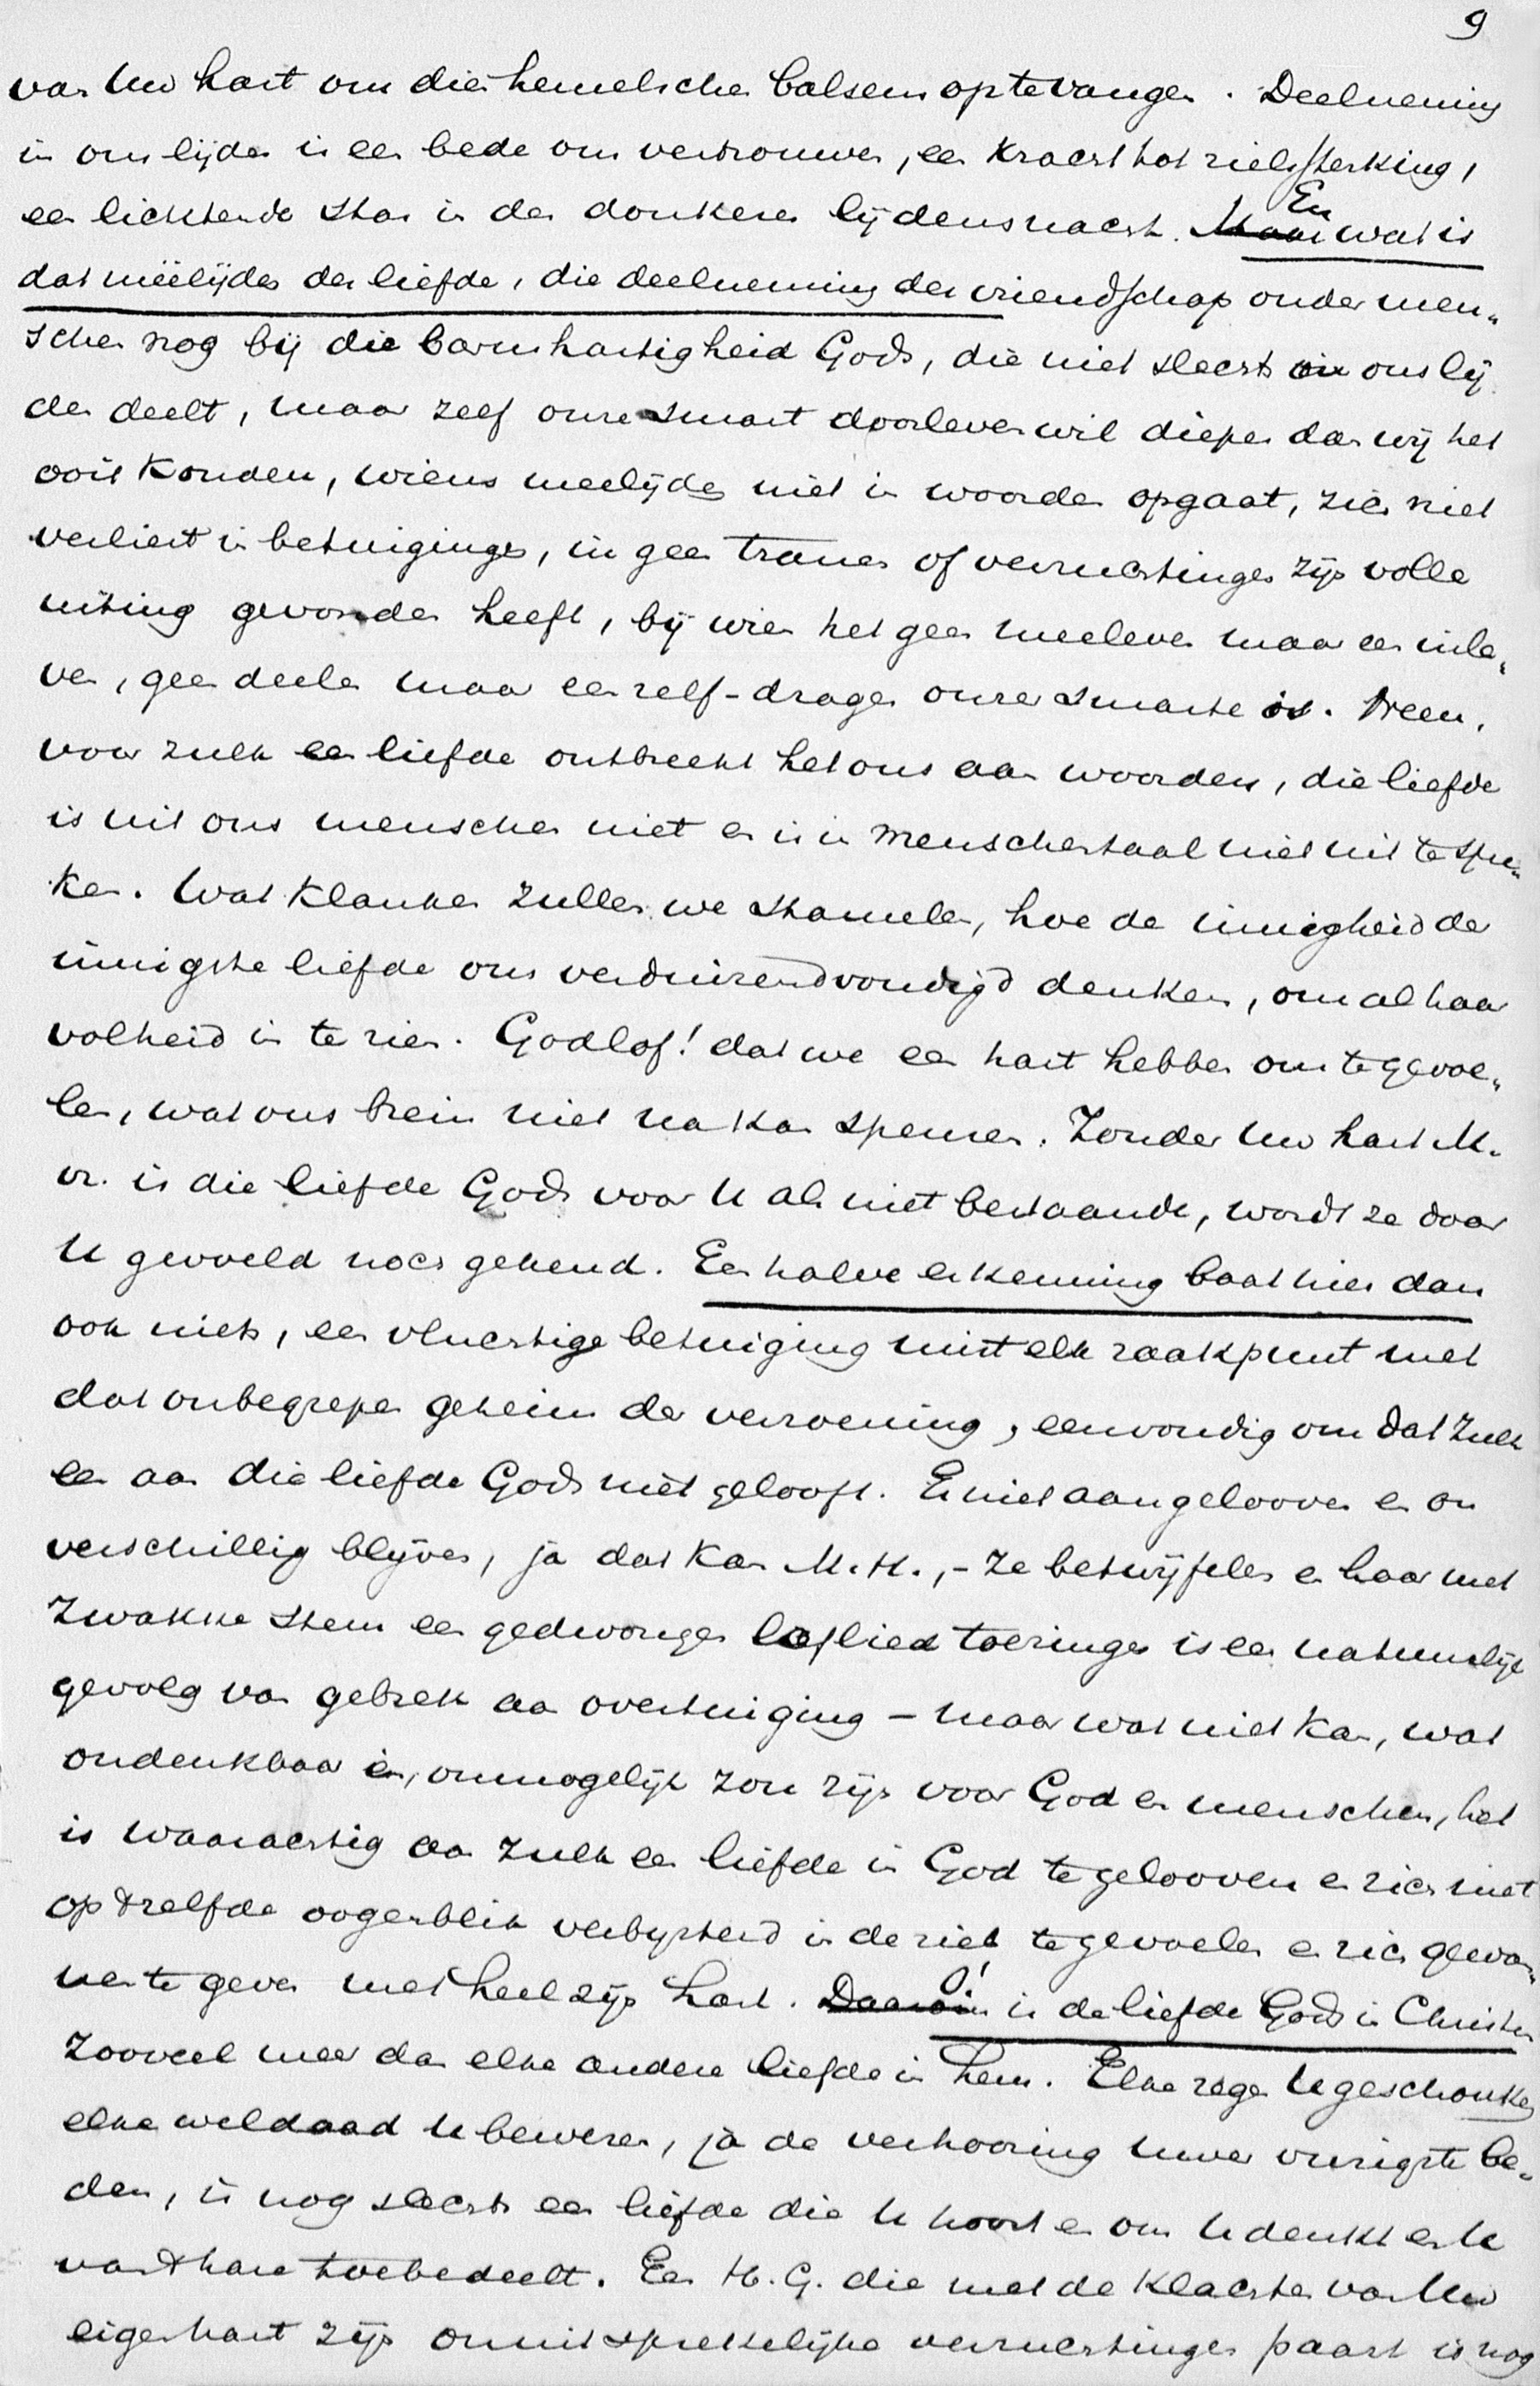 9
van Uw hart om dien hemelschen balsem optevangen. Deelneming
in ons lijden is een bede om vertrouwen, een kracht tot zielssterking,
een lichtende star in den donkeren lijdensnacht. ~~Maar~~ En wat is
dat meêlijden der liefde, die deelneming der vriendschap onder men-
schen nog bij die barmhartigheid Gods, die niet slechts in ons lij
den deelt, maar zelf onze smart doorleven wil dieper dan wij het
ooit konden, wiens meelijden niet in woorden opgaat, zich niet
verliest in betuigingen, in geen tranen of verzuchtingen zijn volle
uiting gevonden heeft, bij wien het geen meeleven maar een inle-
ven, geen deelen maar een zelf-dragen onzer smarte is. Neen,
voor zulk een liefde ontbreekt het ons aan woorden, die liefde
is uit ons menschen niet en is in menschentaal niet uit te spre-
ken. Wat klanken zullen we stamelen, hoe de innigheid der
innigste liefde ons verduizendvoudigd denken, om al haar
volheid in te zien. Godlof! dat we een hart hebben om te gevoe-
len, wat ons brein niet na kan speuren. Zonder Uw hart M.
vr. is die liefde Gods voor U als niet bestaande, wordt ze door
U gevoeld noch gekend. Een halve erkenning baat hier dan
ook niets, een vluchtige betuiging mist elk raakpunt met
dat onbegrepen geheim der verzoening, eenvoudig om dat zulk
een aan die liefde Gods niet gelooft. Er niet aan gelooven en on
verschillig blijven, ja dat kan M.H.,- Ze betwijfelen en haar met
zwakke stem een gedwongen loflied toezingen is een natuurlijk
gevolg van gebrek aan overtuiging - maar wat niet kan, wat
ondenkbaar is, onmogelijk zou zijn voor God en menschen, het
is waarachtig aan zulk een liefde in God te gelooven en zich niet
op 'tzelfde oogenblik verbijsterd in de ziel te gevoelen en zich gewon-
nen te geven met heel zijn hart. ~~Daarom~~ O! is de liefde Gods in Christus
zooveel meer dan elke andere liefde in hem. Elke zegen U geschonken
elke weldaad U bewezen, ja de verhooring Uwer vurigste be-
den, is nog slechts een liefde die U hoort en om U denkt en U
van 't hare toebedeelt. Een H.G. die met de klachten van Uw
eigen hart zijn onuitsprekelijke verzuchtingen paart is nog